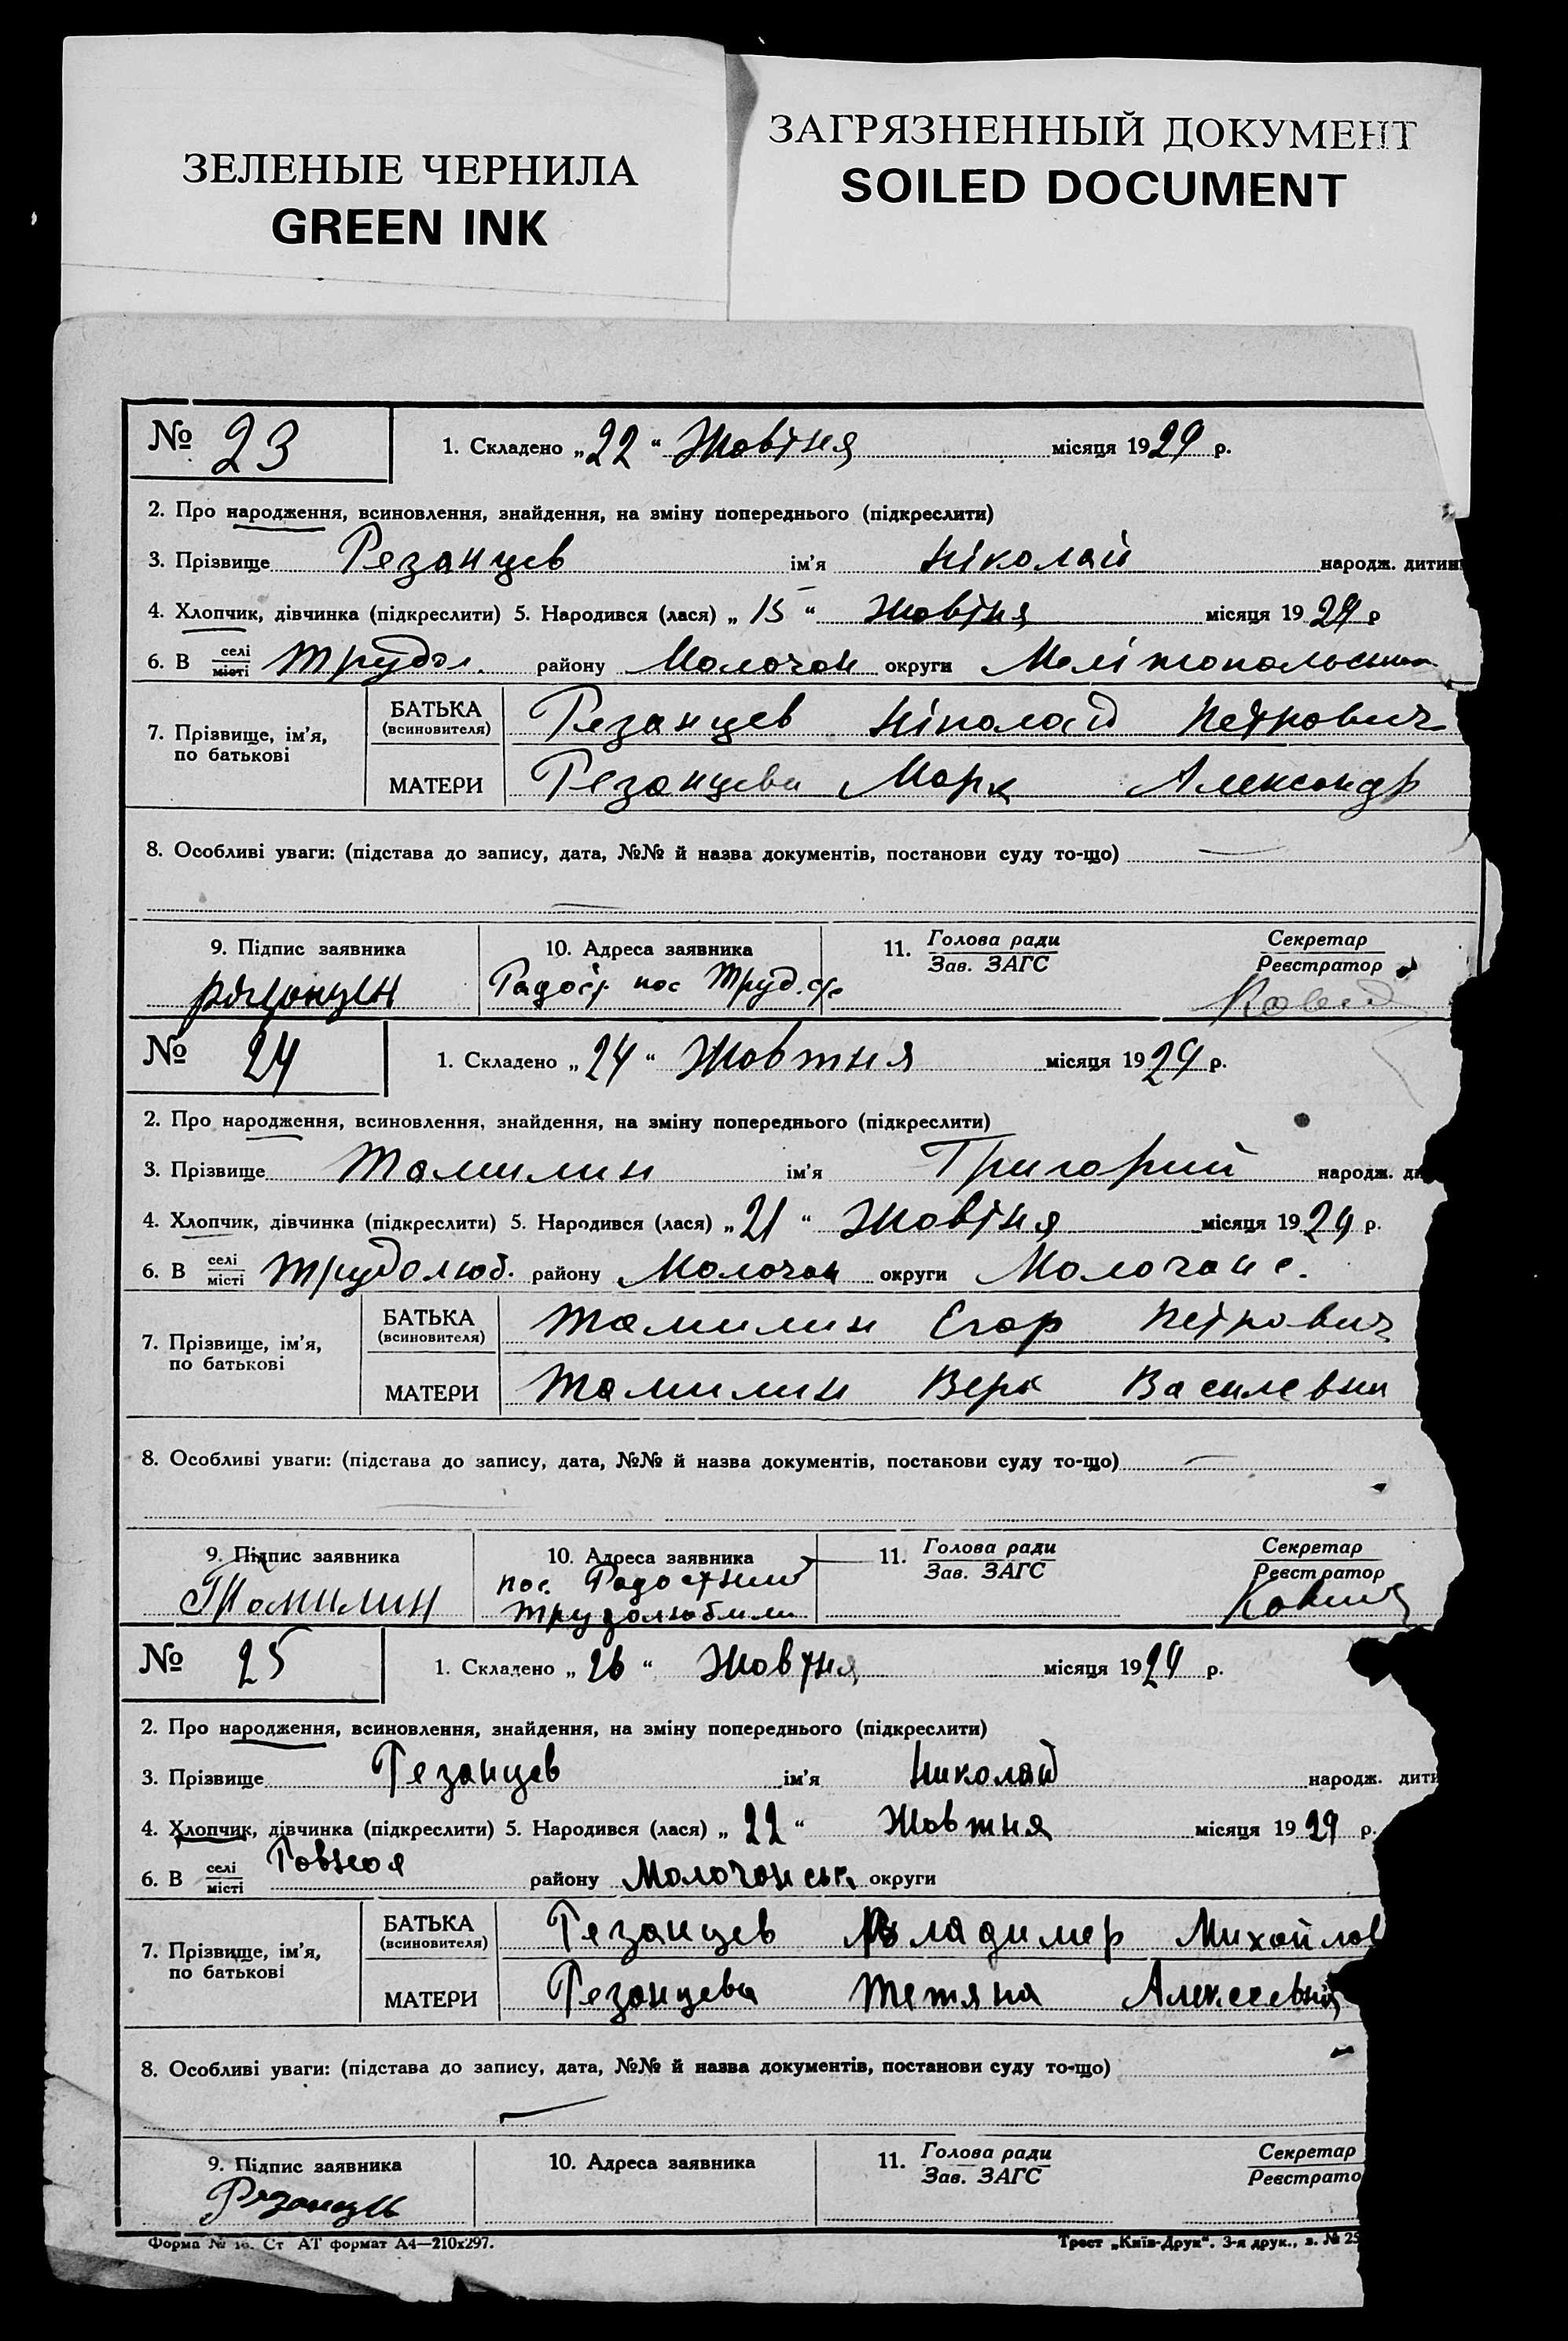 ЗЕЛЕНЫЕ ЧЕРНИЛА
GREEN INK
ЗАГРЯЗНЕННЫЙ ДОКУМЕНТ
SOILED DOCUMENT
№ 23
1. Складено „22“ Жовтня місяця 1929 р.
2. Про народження, всиновлення, знайдення, на зміну попереднього (підкреслити)
3. Прізвище Резанцев ім'я Ніколай народж. дитин
4. Хлопчик, дівчинка (підкреслити) 5. Народився (лася) „15“ Жовтня місяця 1929 р
6. В селі місті Трудол. району Молочан округи
7. Прізвище, ім'я, по батькові
БАТЬКА (всиновителя) Резанцев Ніколай Петрович
МАТЕРИ Резанцева Марк Александр
8. Особливі уваги: (підстава до запису, дата, №№ й назва документів, постанови суду то-що)
9. Підпис заявника
10. Адреса заявника
пос Труд. с/с
11. Голова ради Зав. ЗАГС
Секретар Реєстратор
№ 24
1. Складено „24“ Жовтня місяця 1929 р.
2. Про народження, всиновлення, знайдення, на зміну попереднього (підкреслити)
3. Прізвище Томилин ім'я Григорий народж. ди
4. Хлопчик, дівчинка (підкреслити) 5. Народився (лася) „21“ Жовтня місяця 1929 р.
6. В селі місті Трудолюб. району Молочан округи Молочанс.
7. Прізвище, ім'я, по батькові
БАТЬКА (всиновителя) Томилин Егор Петрович
МАТЕРИ Томилин Вера Василевни
8. Особливі уваги: (підстава до запису, дата, №№ й назва документів, постанови суду то-що)
9. Підпис заявника
Томилин
10. Адреса заявника
пос. Радостний
11. Голова ради Зав. ЗАГС
Секретар Реєстратор
№ 25
1. Складено „26“ Жовтня місяця 1929 р.
2. Про народження, всиновлення, знайдення, на зміну попереднього (підкреслити)
3. Прізвище Резанцев ім'я Николай народж. дити
4. Хлопчик, дівчинка (підкреслити) 5. Народився (лася) „22“ Жовтня місяця 1929 р.
6. В селі місті району Молочанськ. округи
7. Прізвище, ім'я, по батькові
БАТЬКА (всиновителя) Резанцев Владимер Михайлов
МАТЕРИ Резанцева Тетяна Алексеевна
8. Особливі уваги: (підстава до запису, дата, №№ й назва документів, постанови суду то-що)
9. Підпис заявника
10. Адреса заявника
11. Голова ради Зав. ЗАГС
Секретар Реєстрато
Форма № 16. Ст АТ формат А4—210x297.
Трест „Київ-Друк“. 3-я друк., з. № 25